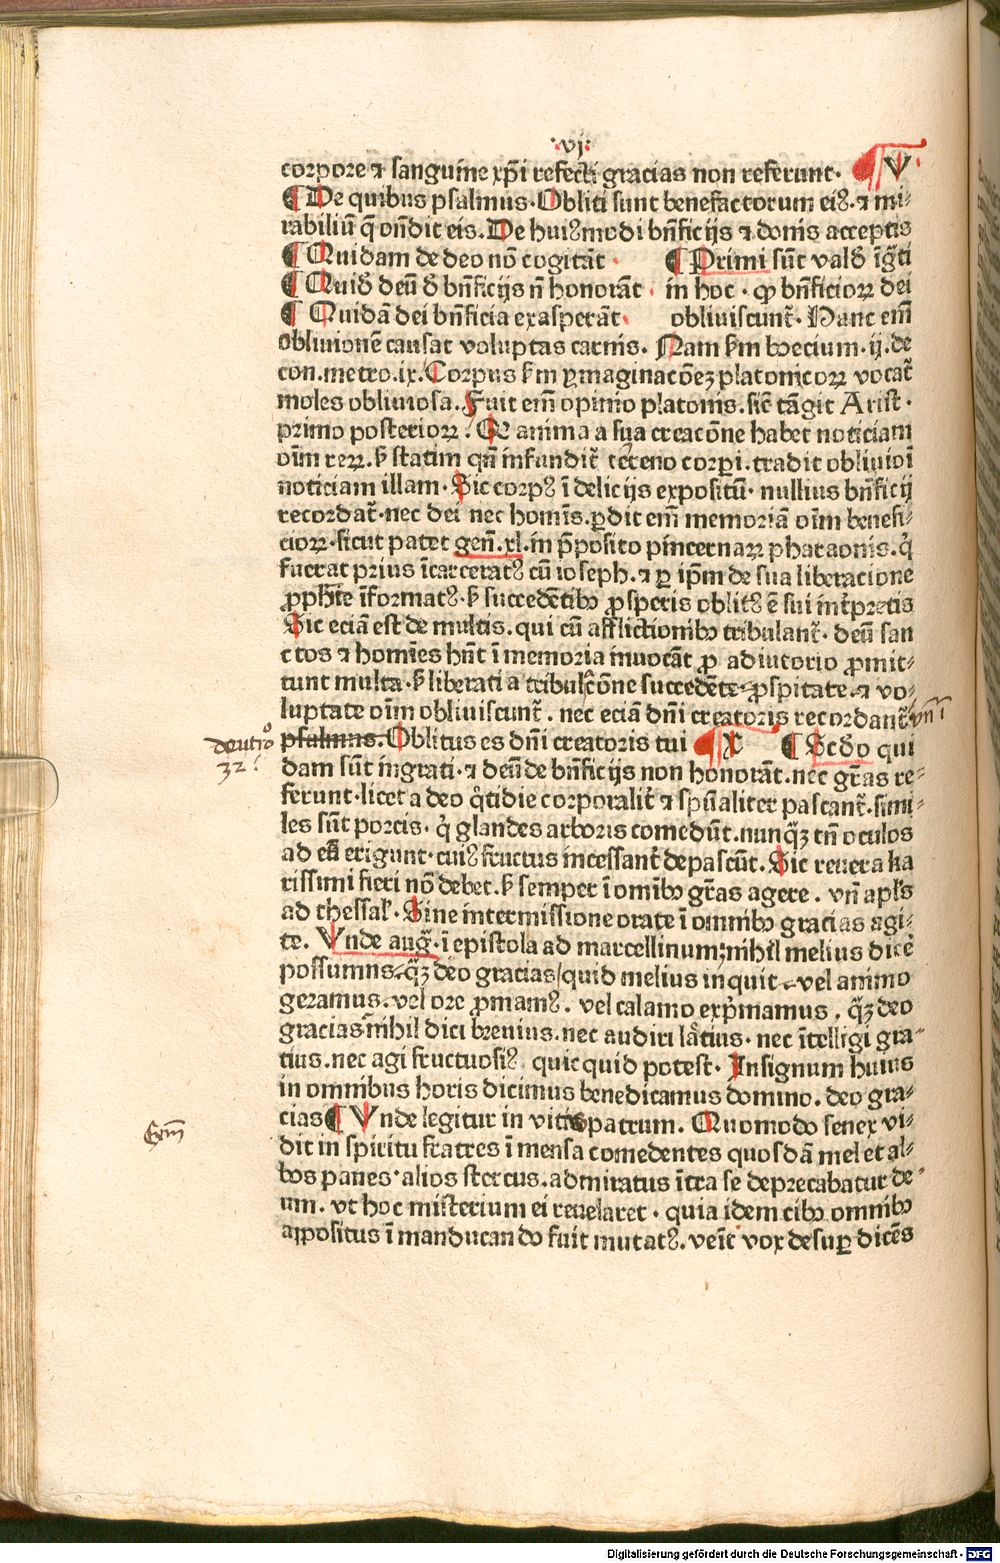 ·vj·
corpore ⁊ sanguine xp̄i refecti gracias non referunt· ¶ V
¶ De quibus psalmus·Obliti sunt benefactorum eiꝰ·⁊ mi⸗
rabiliū q̄ on̄dit eis. De huiꝰmodi bn̄ficijs ⁊ donis acceptis
¶ Quidam de deo nō cogitāt · ¶ Primi sūt vald̄ īg̃ti
¶ Quid̄ deū d̄ bn̄ficijs n̄ honorāt · in hoc · ꝙ bn̄ficioꝝ dei
¶ Quidā dei bn̄ficia exasperāt· obliuiscunt̃· Hanc em̄
obliuionē causat voluptas carnis. Nam ẜm boecium·ij·de
con.metro.ix.Corpus ẜm ymaginacōeꝫ platonicoꝝ vocat̃
moles obliuiosa.Fuit em̄ opinio platonis.sic̄ tāgit Arist·
primo posterioꝝ. Qꝛ anima a sua creacōne habet noticiam
oīm reꝝ.ẜ statim qn̄ infundit̃ terreno corpori.tradit obliuioī
noticiam illam·Sic corpꝰ ī delicijs expositū· nullius bn̄ficij
recordat̃·nec dei nec homīs.ꝑdit em̄ memoriā oīm benefi⸗
cioꝝ·sicut patet gen̄.xl.in p̄posito pincernaꝝ pharaonis.q̇
fuerat prius īcarceratꝰ cū ioseph.⁊ ꝑ ip̄m de sua liberacione
ꝓphīe īformatꝰ·ẜ succedētibꝰ ꝓsperis oblitꝰ ē sui int̃pretis
Sic eciā est de multis.qui cū afflictionibꝰ tribulant̃· deū san
ctos ⁊ homīes hn̄t ī memoria inuocāt ꝓ adiutorio ꝓmit⸗
tunt multa·ẜ liberati a tribulacōne succedēte ꝓspitate ⁊ vo⸗
luptate oīm obliuiscunt̃. nec eciā dn̄i creatoris recordant̃ vn̄ ī
deutro° psalmus.Oblitus es dn̄i creatoris tui ¶ X ¶ Scd̄o qui
32.° dam sūt ingrati·⁊ deū de bn̄ficijs non honorāt.nec gr̄as re⸗
ferunt·licet a deo q̇tidie corporalit̃ ⁊ spūaliter pascant̃·simi⸗
les sūt porcis· q̇ glandes arboris comedūt.nunq̄ꝫ tn̄ oculos
ad eā erigunt·cuiꝰ fructus incessant̃ depascūt.Sic reuera ka
rissimi fieri nō debet.ẜ semper ī omībꝰ gr̄as agere. vn̄ apl̄s
ad thessal̄·Sine intermissione orate ī omnibꝰ gracias agi⸗
te. Vnde aug̃·ī epistola ad marcellinum;nihil melius dicē
possumus q̄ꝫ deo gracias quid melius inquit vel animo
geramus.vel ore ꝓmamꝰ. vel calamo exp̄mamus. q̄ꝫ deo
gracias nihil dici breuius.nec audiri latius· nec ītelligi gra⸗
tius.nec agi fructuosiꝰ quicquid potest· Insignum huius
in omnibus horis dicimus benedicamus domino. deo gra⸗
cias ¶ Vnde legitur in vitis patrum. Quomodo senex vi⸗
Exm̄ dit in spiritu fratres ī mensa comedentes quosdā mel et al⸗
bos panes·alios stercus.admiratus ītra se deprecabatur de⸗
um. vt hoc misterium ei reuelaret· quia idem cibꝰ omnibꝰ
appositus ī manducando fuit mutatꝰ.veīt vox desuꝑ dicēs
Digitalisierung gefördert durch die Deutsche Forschungsgemeinschaft - DFG